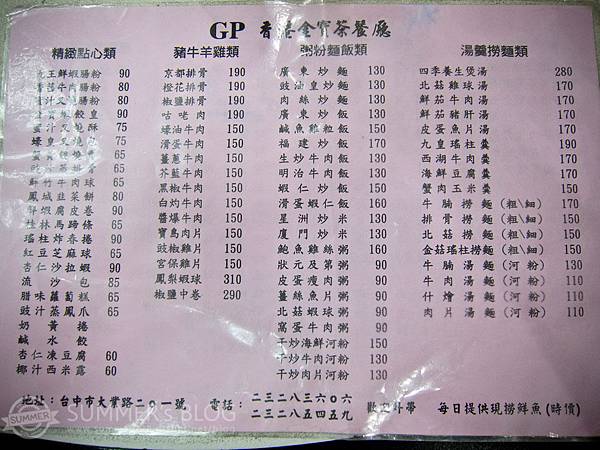 GP 香港金寶茶餐廳
精緻點心類
鮮蝦腸粉 90
腸粉 80
腸粉 80
皇 90
蜜汁叉燒酥 75
75
65
65
鮮竹牛肉球 65
韮菜餅 80
鮮蝦腐皮卷 90
桂林馬蹄條 65
瑤柱炸春捲 90
紅豆芝麻球 65
杏仁沙拉蝦 90
流沙包 85
臘味蘿蔔糕 65
豉汁蒸鳳爪 65
奶黃捲
鹹水餃
杏仁凍豆腐 60
椰汁西米露 60
豬牛羊雞類
京都排骨 190
橙花排骨 190
椒鹽排骨 190
咕咾肉 190
蠔油牛肉 150
滑蛋牛肉 150
薑蔥牛肉 150
芥藍牛肉 150
黑椒牛肉 150
白灼牛肉 150
醬爆牛肉 150
寶島肉片 150
豉椒雞片 150
宮保雞片 150
鳳梨蝦球 310
椒鹽中卷 290
粥粉麵飯類
廣東炒麵 130
豉油皇炒麵 130
肉絲炒麵 130
廣東炒飯 130
鹹魚雞粒飯 150
福建炒飯 170
生炒牛肉飯 130
明治牛肉飯 130
蝦仁炒飯 150
滑蛋蝦仁飯 160
星洲炒米 130
廈門炒米 130
鮑魚雞絲粥 160
狀元及第粥 90
皮蛋瘦肉粥 90
薑絲魚片粥 90
北菇蝦球粥 90
窩蛋牛肉粥 90
干炒海鮮河粉 150
干炒牛肉河粉 130
干炒肉片河粉 130
湯羹撈麵類
四季養生煲湯 280
北菇雞球湯 170
鮮茄牛肉湯 170
鮮茄豬肝湯 170
皮蛋魚片湯 170
九皇瑤柱羹 190
西湖牛肉羹 170
海鮮豆腐羹 170
蟹肉玉米羹 150
牛腩撈麵(粗\細) 170
排骨撈麵(粗\細) 150
北菇撈麵(粗\細) 150
金菇瑤柱撈麵(粗\細) 150
牛腩湯麵(河粉) 130
牛肉湯麵(河粉) 110
什燴湯麵(河粉) 110
肉片湯麵(河粉) 110
地址:台中市大業路二○一號 電話: 二三二八三六○六
二三二八五四五九
歡迎外帶 每日提供現撈鮮魚(時價)
SUMMER'S BLOG
SUMMER